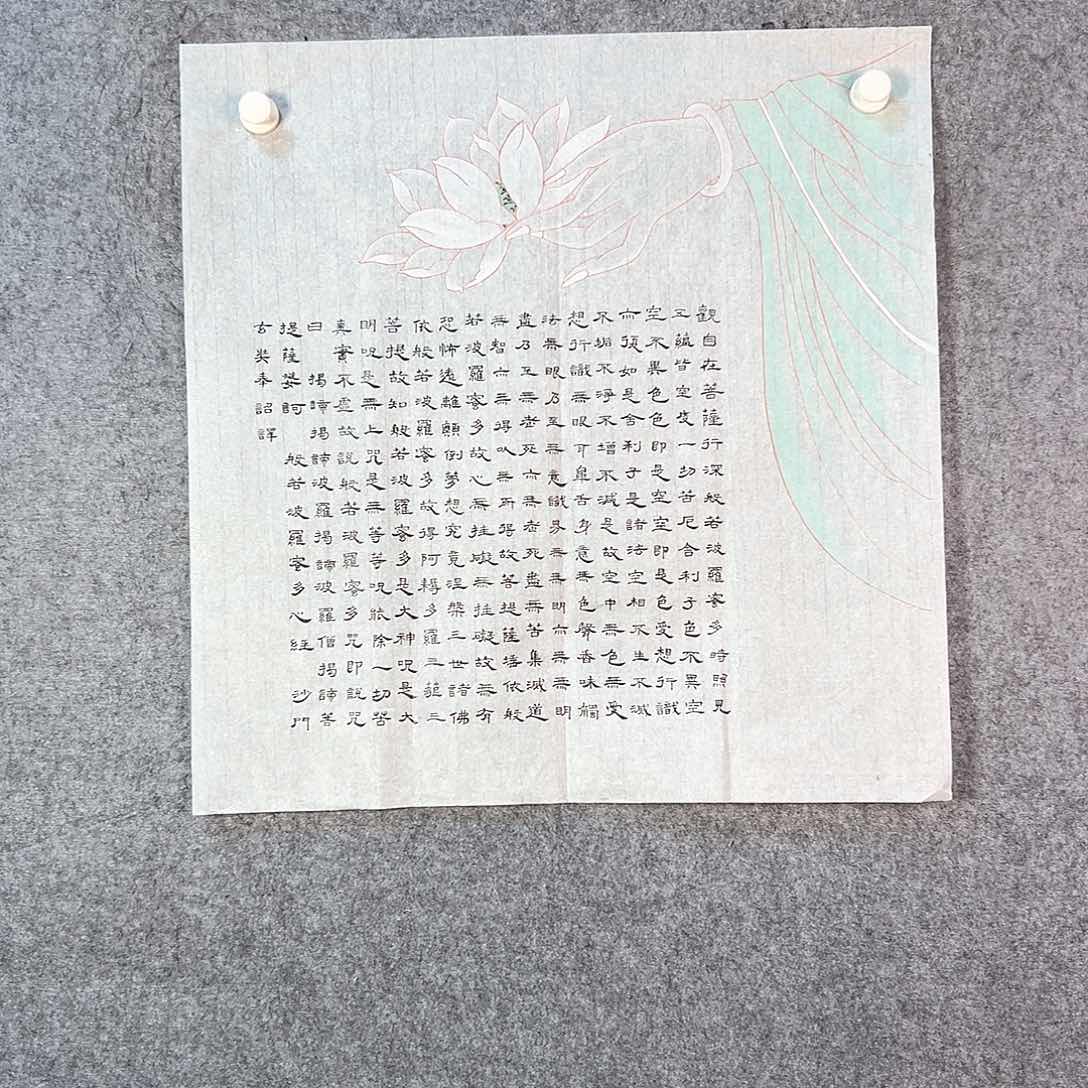 觀自在菩薩行深般若波羅蜜多時照見
五蘊皆空度一切苦厄舍利子色不異空
空不異色色即是空空即是色受想行識
亦復如是舍利子是諸法空相不生不滅
不垢不淨不增不減是故空中無色無受
想行識無眼耳鼻舌身意無色聲香味觸
法無眼乃至無意識界無無明亦無無明
盡乃至無老死亦無老死盡無苦集滅道
無智亦無得以無所得故菩提薩埵依般
若波羅蜜多故心無挂礙無挂礙故無有
恐怖遠離顛倒夢想究竟涅槃三世諸佛
依般若波羅蜜多故得阿耨多羅三藐三
菩提故知般若波羅蜜多是大神呪是大
明呪是無上咒是無等等呪能除一切苦
真實不虛故說般若波羅蜜多咒即說咒
曰 揭諦揭諦波羅揭諦波羅僧揭諦菩
提薩婆訶 般若波羅蜜多心經 沙門
玄奘奉詔譯